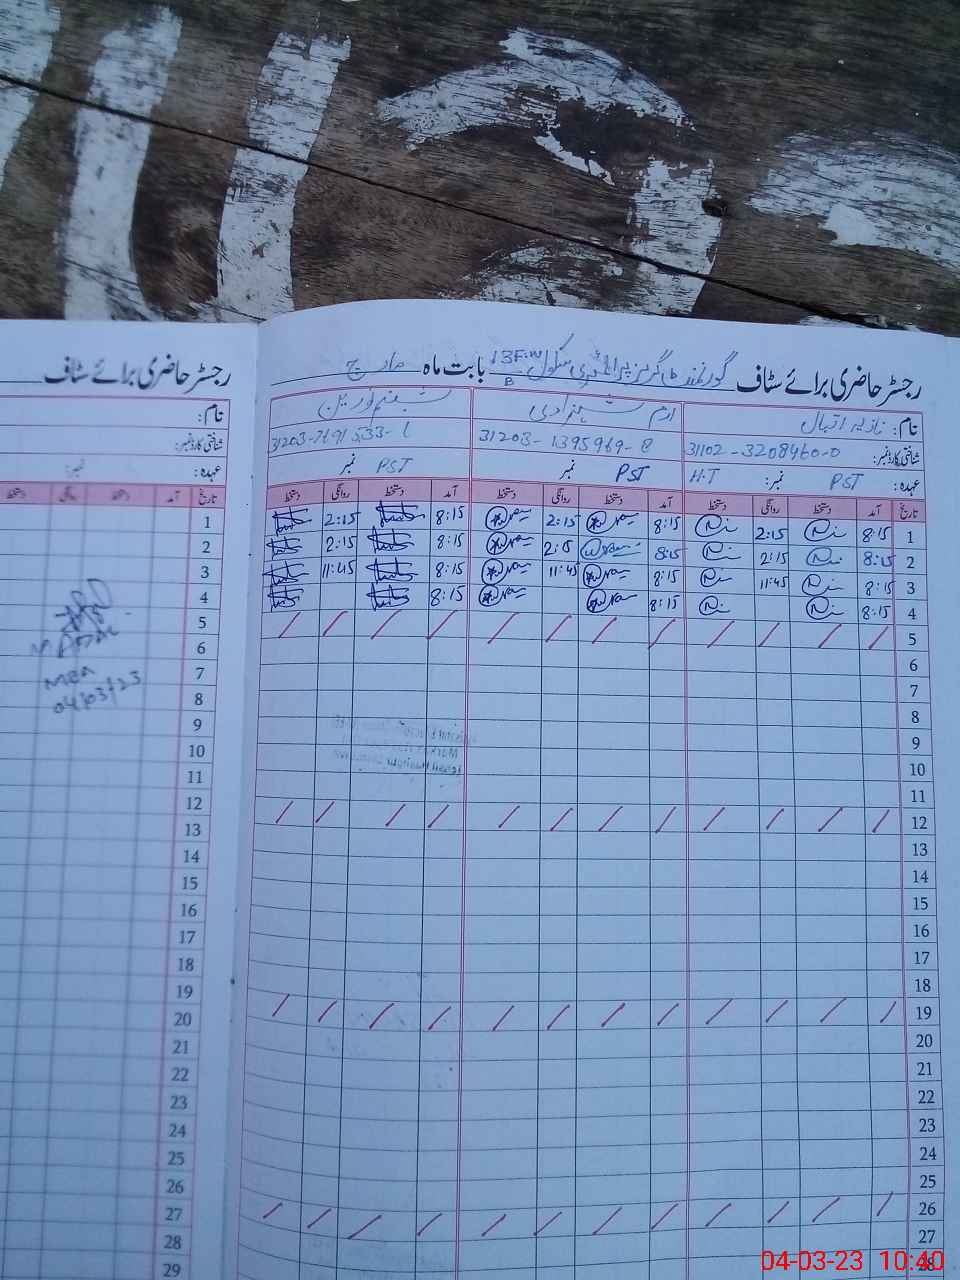 رجسٹر حاضری برائے سٹاف گورنمنٹ گرلز پرائمری سکول 13F.W بابت ماہ مارچ
B
نام: نازیہ اقبال ارم شہزادی شبنم نورین
شناختی کارڈ نمبر: 31102-3208460-0 31203-1395969-8 31203-7691533-1
عہدہ: PST نمبر: H.T PST نمبر PST نمبر
تاریخ آمد دستخط روانگی دستخط آمد دستخط روانگی دستخط آمد دستخط روانگی دستخط
1 8:15 2:15 8:15 2:15 8:15 2:15
2 8:15 2:15 8:15 2:15 8:15 2:15
3 8:15 11:45 8:15 11:45 8:15 11:45
4 8:15 8:15 8:15
5
6
7
8
9
10
11
12
13
14
15
16
17
18
19
20
21
22
23
24
25
26
27
28
رجسٹر حاضری برائے سٹاف
نام:
شناختی کارڈ نمبر:
عہدہ: نمبر:
تاریخ آمد دستخط روانگی دستخط
1
2
3
4
5
6
7
8
9
10
11
12
13
14
15
16
17
18
19
20
21
22
23
24
25
26
27
28
29
MEA
04/03/23
04-03-23 10:40